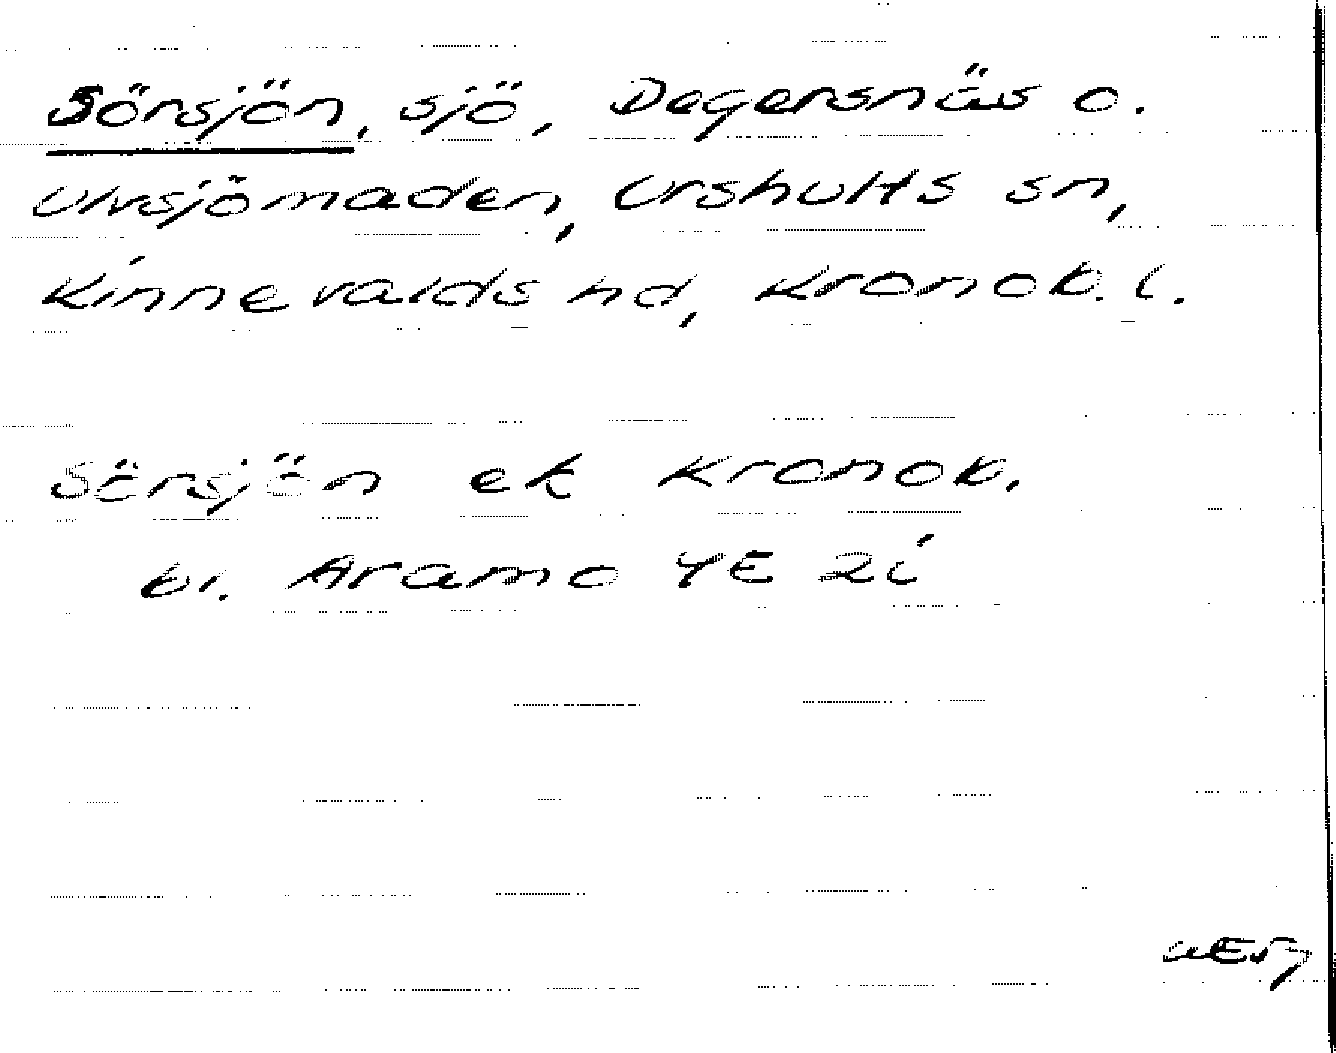 Sörsjön, sjö, Degersnäs o.
Ulvsjömaden, Urshults sn,
Kinnevalds hd, Kronob. l.
Sörsjön ek Kronob.
bl. Aramo 4E 2i